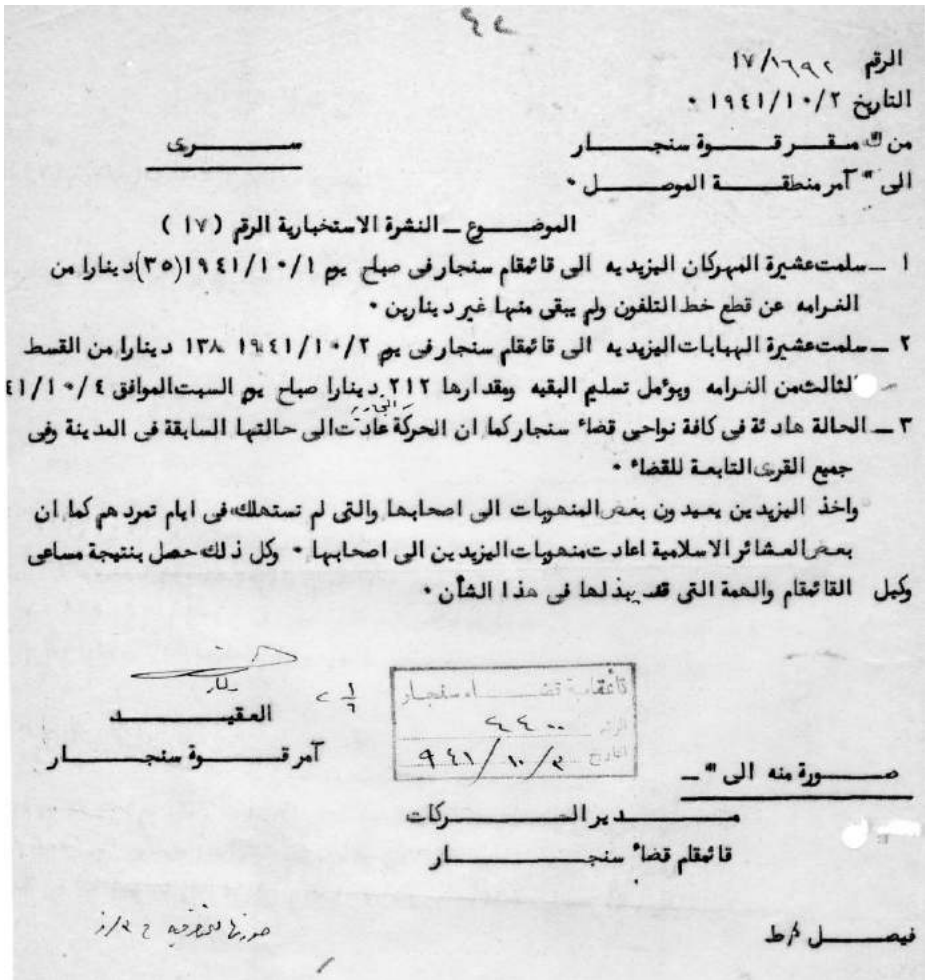 ٤٤
الرقم ١٧/١٦٩٢
التاريخ ١٩٤١/١٠/٢ ٠
من " مقر قوة سنجار
سرى
الى " آمر منطقة الموصل ٠
الموضوع ــ النشرة الاستخبارية الرقم ( ١٧ )
١ ــ سلمت عشيرة المهركان اليزيديه الى قائمقام سنجار فى صباح يوم ١٩٤١/١٠/١ (٣٥) دينارا من
الغرامه عن قطع خط التلفون ولم يبقى منها غير دينارين ٠
٢ ــ سلمت عشيرة الهبابات اليزيديه الى قائمقام سنجار فى يوم ١٩٤١/١٠/٢ ١٣٨ دينارا من القسط
الثالث من الغرامه ويؤمل تسليم البقيه ومقدارها ٢١٢ دينارا صباح يوم السبت الموافق ٤١/١٠/٤
٣ ــ الحالة هادئة فى كافة نواحى قضاء سنجار كما ان الحركة التجارية عادت الى حالتها السابقة فى المدينة وفى
جميع القرى التابعة للقضاء ٠
واخذ اليزيدين يعيدون بعض المنهوبات الى اصحابها والتى لم تستهلك فى ايام تمردهم كما ان
بعض العشائر الاسلامية اعادت منهوبات اليزيدين الى اصحابها ٠ وكل ذلك حصل بنتيجة مساعى
وكيل القائمقام والهمة التى قد يبذلها فى هذا الشأن ٠
العقيد
آمر قوة سنجار
قائمقامية قضاء سنجار
الرقم ٤٤٠٠
التاريخ ٩٤١/١٠/٣
صورة منه الى " ــ
مدير الحركات
قائمقام قضاء سنجار
فيصل /ط